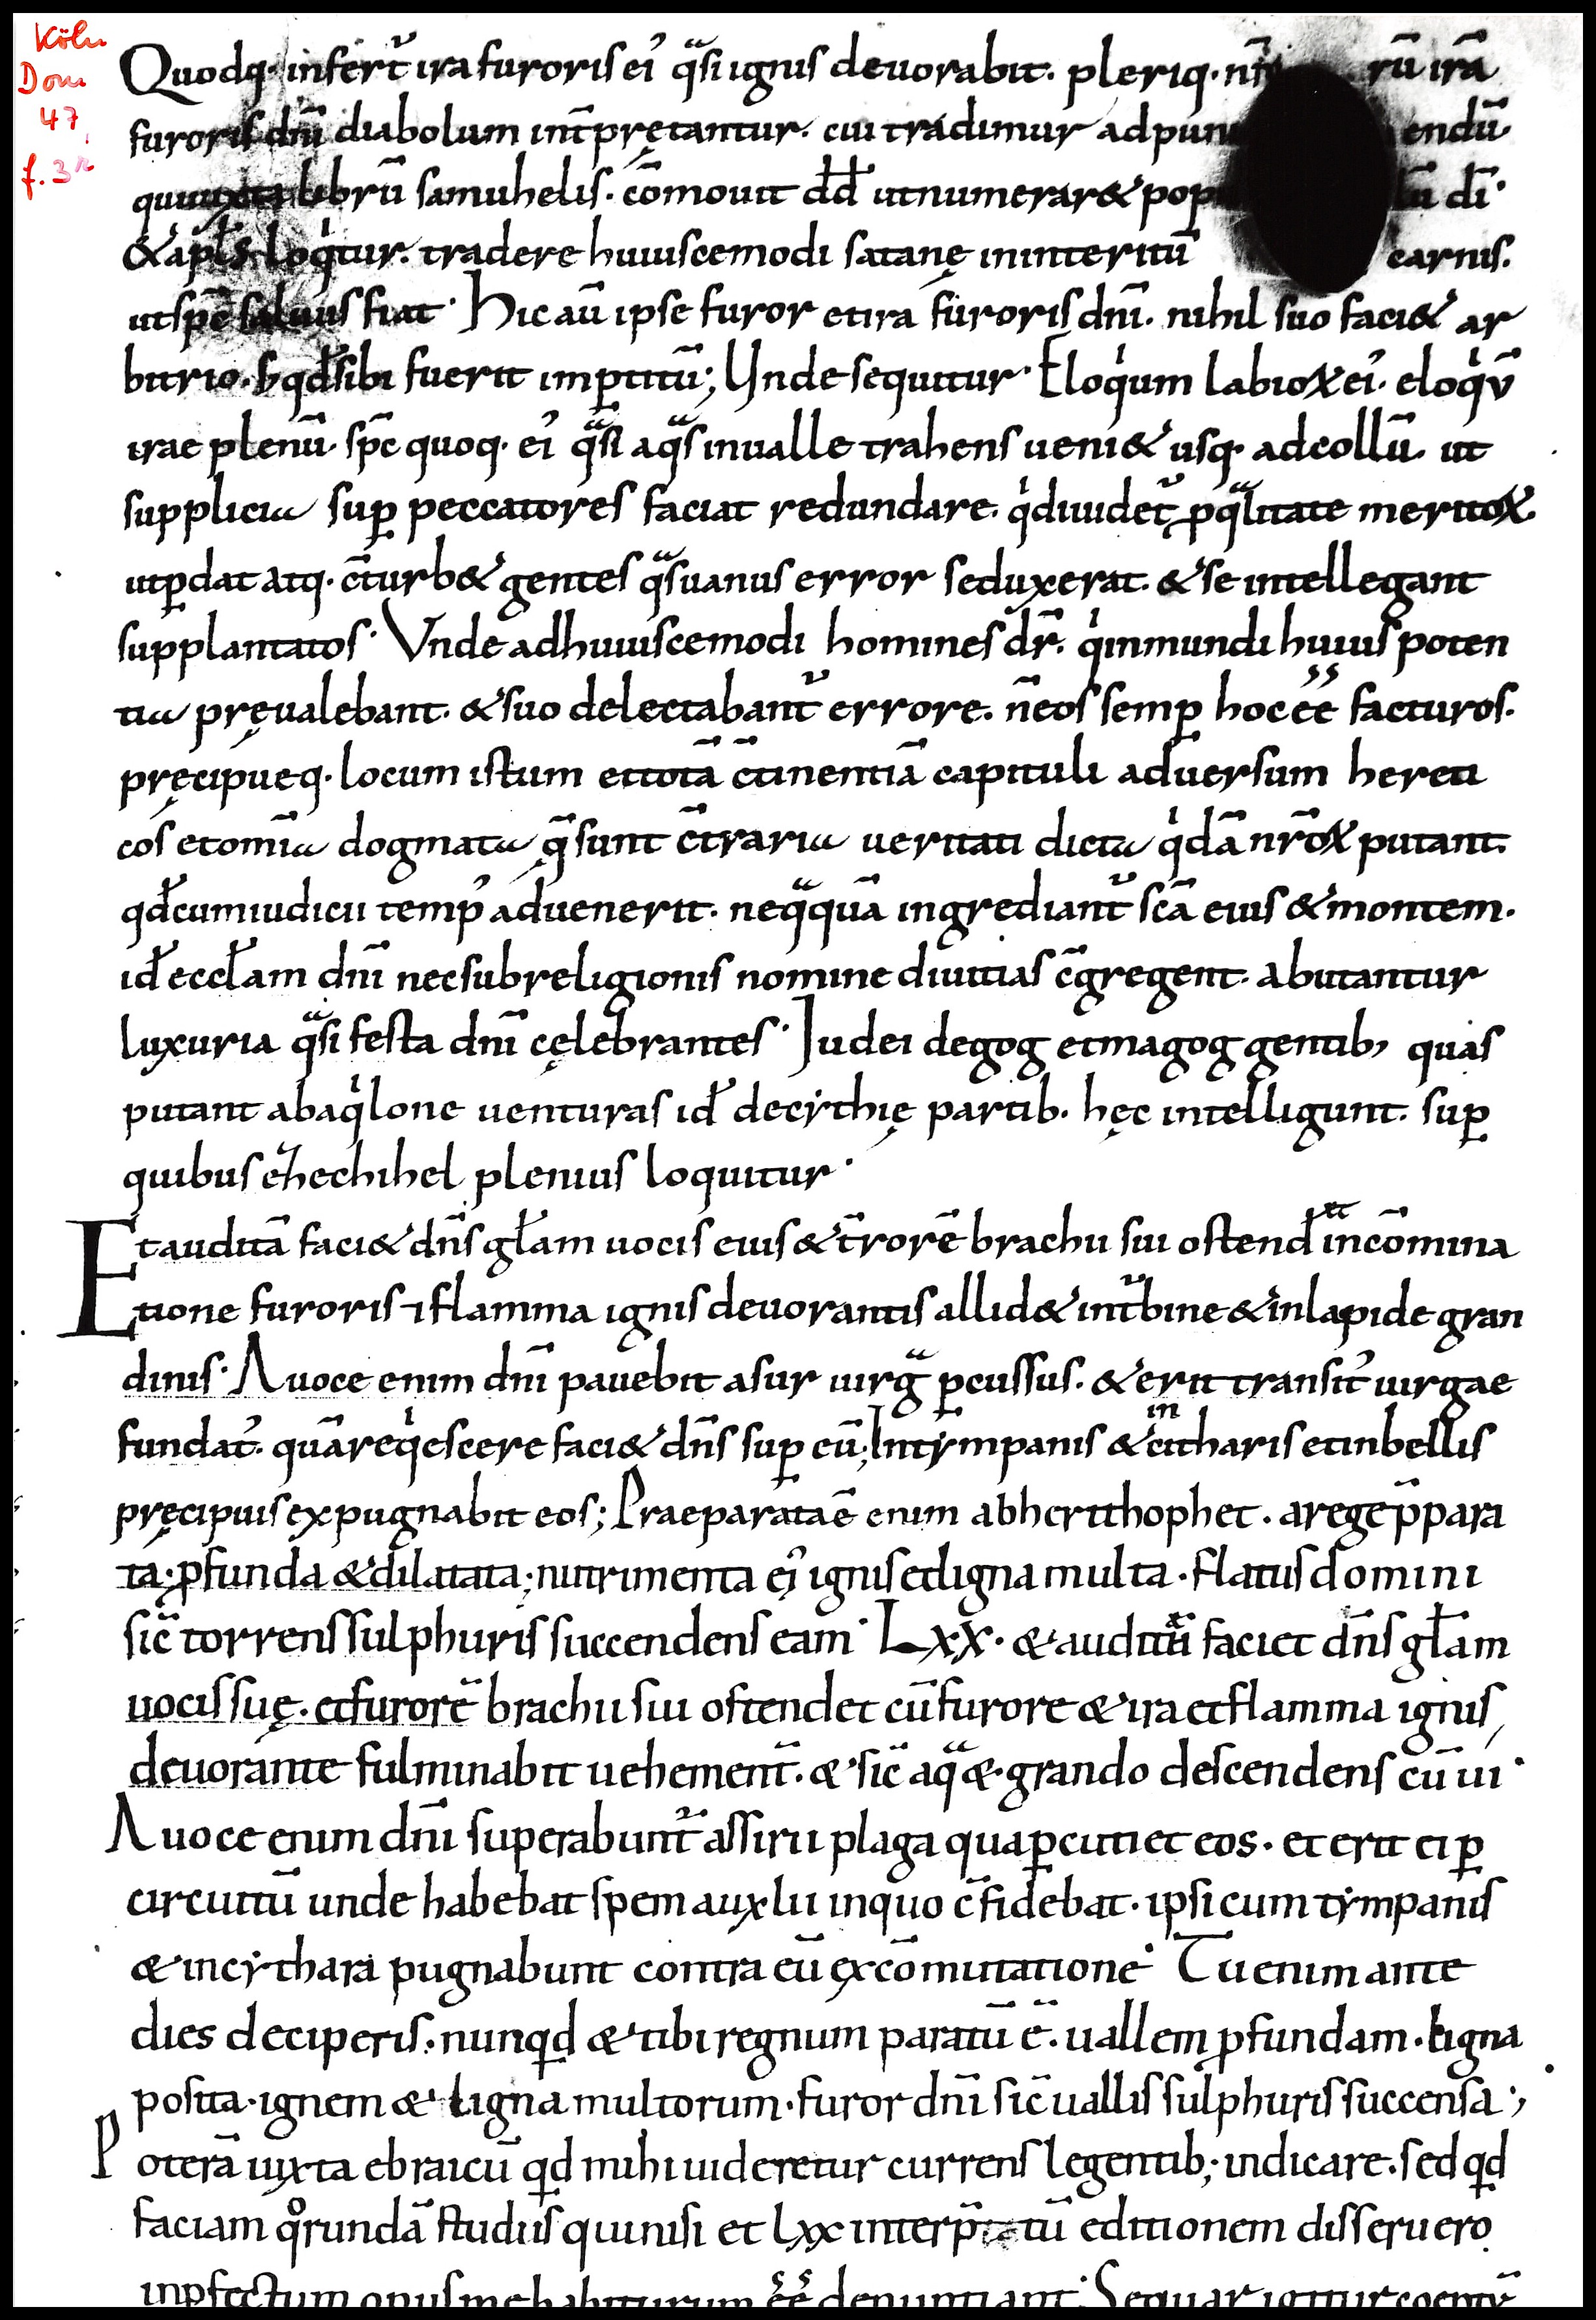 Köln
Dom
47,
f. 3r
Quodq· infert᷑ ira furoris eı᾽ qͣsi ignis deuorabit. pleriq· nr̄ı rū irā
furoris dnī diabolum int̄pretantur. cui tradimur ad puni endū·
qui iuxta librū samuhelis· cōmouit dd̄ ut numerar& pop lū dī·
& apłs loqͥtur. tradere huiuscemodi satanę in interitū carnis.
ut spc̄ saluus fiat· Hic aū ipse furor et ira furoris dnī. nihil suo faci& ar
bitrio. s; qđ sibi fuerit imꝑtitū; Unde sequitur· Eloqͥum labioꝝ eı᾽. eloqͥū
irae plenū. spc̄ quoq· eı᾽ qͣsi aqͣs in ualle trahens ueni& usq· ad collū. ut
supplicia suꝑ peccatores faciat redundare. qͥ diuidet᷑ ꝓ qͣlitate meritoꝝ
ut ꝑdat atq· c̄turb& gentes qͣs uanus error seduxerat. & se intellegant
supplantatos· Vnde ad huiuscemodi homines dr̄. qͥ in mundi huius poten
tia pręualebant. & suo delectabant᷑ errore. n̄ eos semꝑ hoc ee͂ facturos.
pręcipueq· locum istum et totā c̄tinentiā capituli aduersum hereti
cos et om̄ia dogmata q̄ sunt c̄traria ueritati dicta qͥdā nr̄oꝝ putant.
qđ cum iudicii temp᾽ aduenerit. neqͣquā ingrediant᷑ scā eius & montem.
iđ eccłam dnī nec sub religionis nomine diuitias c̄gregent. abutantur
luxuria qͣsi festa dnī cęlebrantes· Iudei de gog et magog gentib; quas
putant ab aqͥlone uenturas iđ de cythię partib. hęc intelligunt. suꝑ
quibus & hechihel plenius loquitur·
Et auditā faci& dn̄s głam uocis eius & t̄rorē brachii sui ostend& in cōmina
tione furoris ⁊ flamma ignis deuorantis allid& in t᷑bine & in lapide gran
dinis· A uoce enim dnī pauebit asur uirgͣ ꝑcussus. & erit transit᾽ uirgae
fundat᾽. quā reqͥescere faci& dn̄s suꝑ eū; In tympanis & in citharis et in bellis
pręcipuis expugnabit eos; Praeparata ē enim ab heri thophet. a rege p̄para
ta. ꝓfunda & dilatata; nutrimenta eı᾽ ignis et ligna multa. flatus domini
sic̄ torrens sulphuris succendens eam· Lxx. & auditā faciet dn̄s głam
uocis suę. et furorē brachii sui ostendet cū furore & ira et flamma ignis
deuorante fulminabit uehement̄. & sic̄ aqͣ & grando descendens cū ui·
A uoce enim dnī superabunt᷑ assirii plaga qua ꝑcutiet eos. et erit ei ꝑ
circuitū unde habebat spem auxlii in quo c̄fidebat. ipsi cum tympanis
& in cythara pugnabunt contra eū ex cōmutatione· Tu enim ante
dies deciperis. nunqd & tibi regnum paratū ē. uallem ꝓfundam. ligna
posita. ignem & ligna multorum. furor dnī sic̄ uallis sulphuris succensa;
Poterā iuxta ebraicū qd mihi uideretur currens legentib; indicare. sed qd
faciam qͦrundā studiis qui nisi et lxx interp̄tatū editionem disseruero
inꝑfectum opus me habiturum ee͂ denuntiant· Sequar igitur coeptū